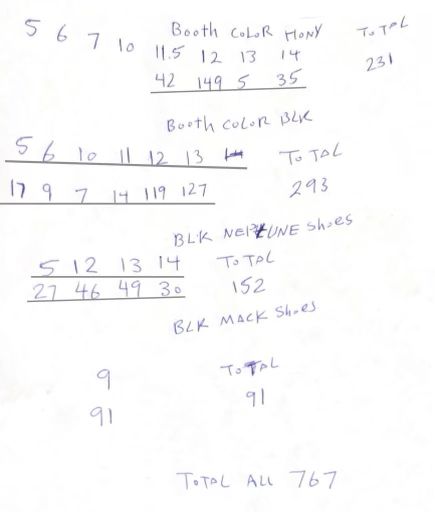 5 6 7 10 Booth COLOR MONY TOTAL
11.5 12 13 14
42 149 5 35 231
Booth COLOR BLK
5 6 10 11 12 13 TOTAL
17 9 7 14 119 127 293
BLK NEPTUNE Shoes
5 12 13 14 TOTAL
27 46 49 30 152
BLK MACK Shoes
9 TOTAL
91 91
TOTAL ALL 767